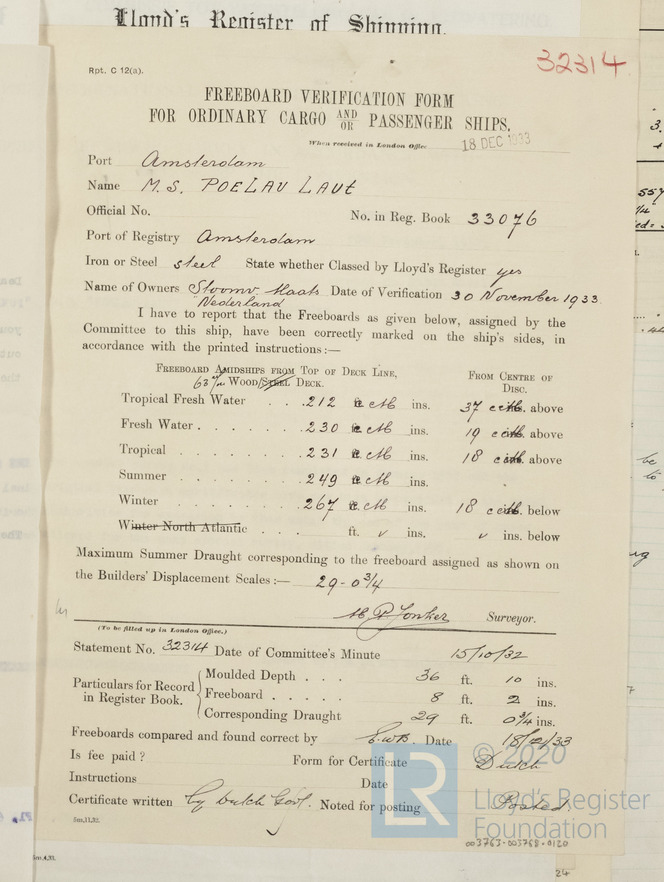 Lloyd's Register of Shipping.
32314
Rpt. C 12(a).
FREEBOARD VERIFICATION FORM
FOR ORDINARY CARGO AND/OR PASSENGER SHIPS.
When received in London Office 18 DEC 1933
Port Amsterdam
Name M.S. POELAU LAUT
Official No. No. in Reg. Book 33076
Port of Registry Amsterdam
Iron or Steel steel State whether Classed by Lloyd's Register yes
Name of Owners Stoomv. Maats Date of Verification 30 November 1933
Nederland
I have to report that the Freeboards as given below, assigned by the
Committee to this ship, have been correctly marked on the ship's sides, in
accordance with the printed instructions:—
FREEBOARD AMIDSHIPS FROM TOP OF DECK LINE, FROM CENTRE OF
63 m/m WOOD/STEEL DECK. DISC.
Tropical Fresh Water . . . 212 cM ins. 37 above
Fresh Water . . . . . . . 230 cM ins. 19 above
Tropical . . . . . . . 231 cM ins. 18 above
Summer . . . . . . . 249 cM ins.
Winter . . . . . . . 267 cM ins. 18 below
Winter North Atlantic . . . ft. ins. ins. below
Maximum Summer Draught corresponding to the freeboard assigned as shown on
the Builders' Displacement Scales:— 29-0 3/4
Surveyor.
(To be filled up in London Office.)
Statement No. 32314 Date of Committee's Minute 15/10/32
Particulars for Record in Register Book.
Moulded Depth . . . 36 ft. 10 ins.
Freeboard . . . . . 8 ft. 2 ins.
Corresponding Draught 29 ft. 0 3/4 ins.
Freeboards compared and found correct by E.W.B. Date 18/12/33
Is fee paid? Form for Certificate Dutch
Instructions Date
Certificate written by Dutch Govt. Noted for posting Posted
5m,11,32.
© 2020
LR
Lloyd's Register
Foundation
003763-003768-0120
5m,4,33.
24